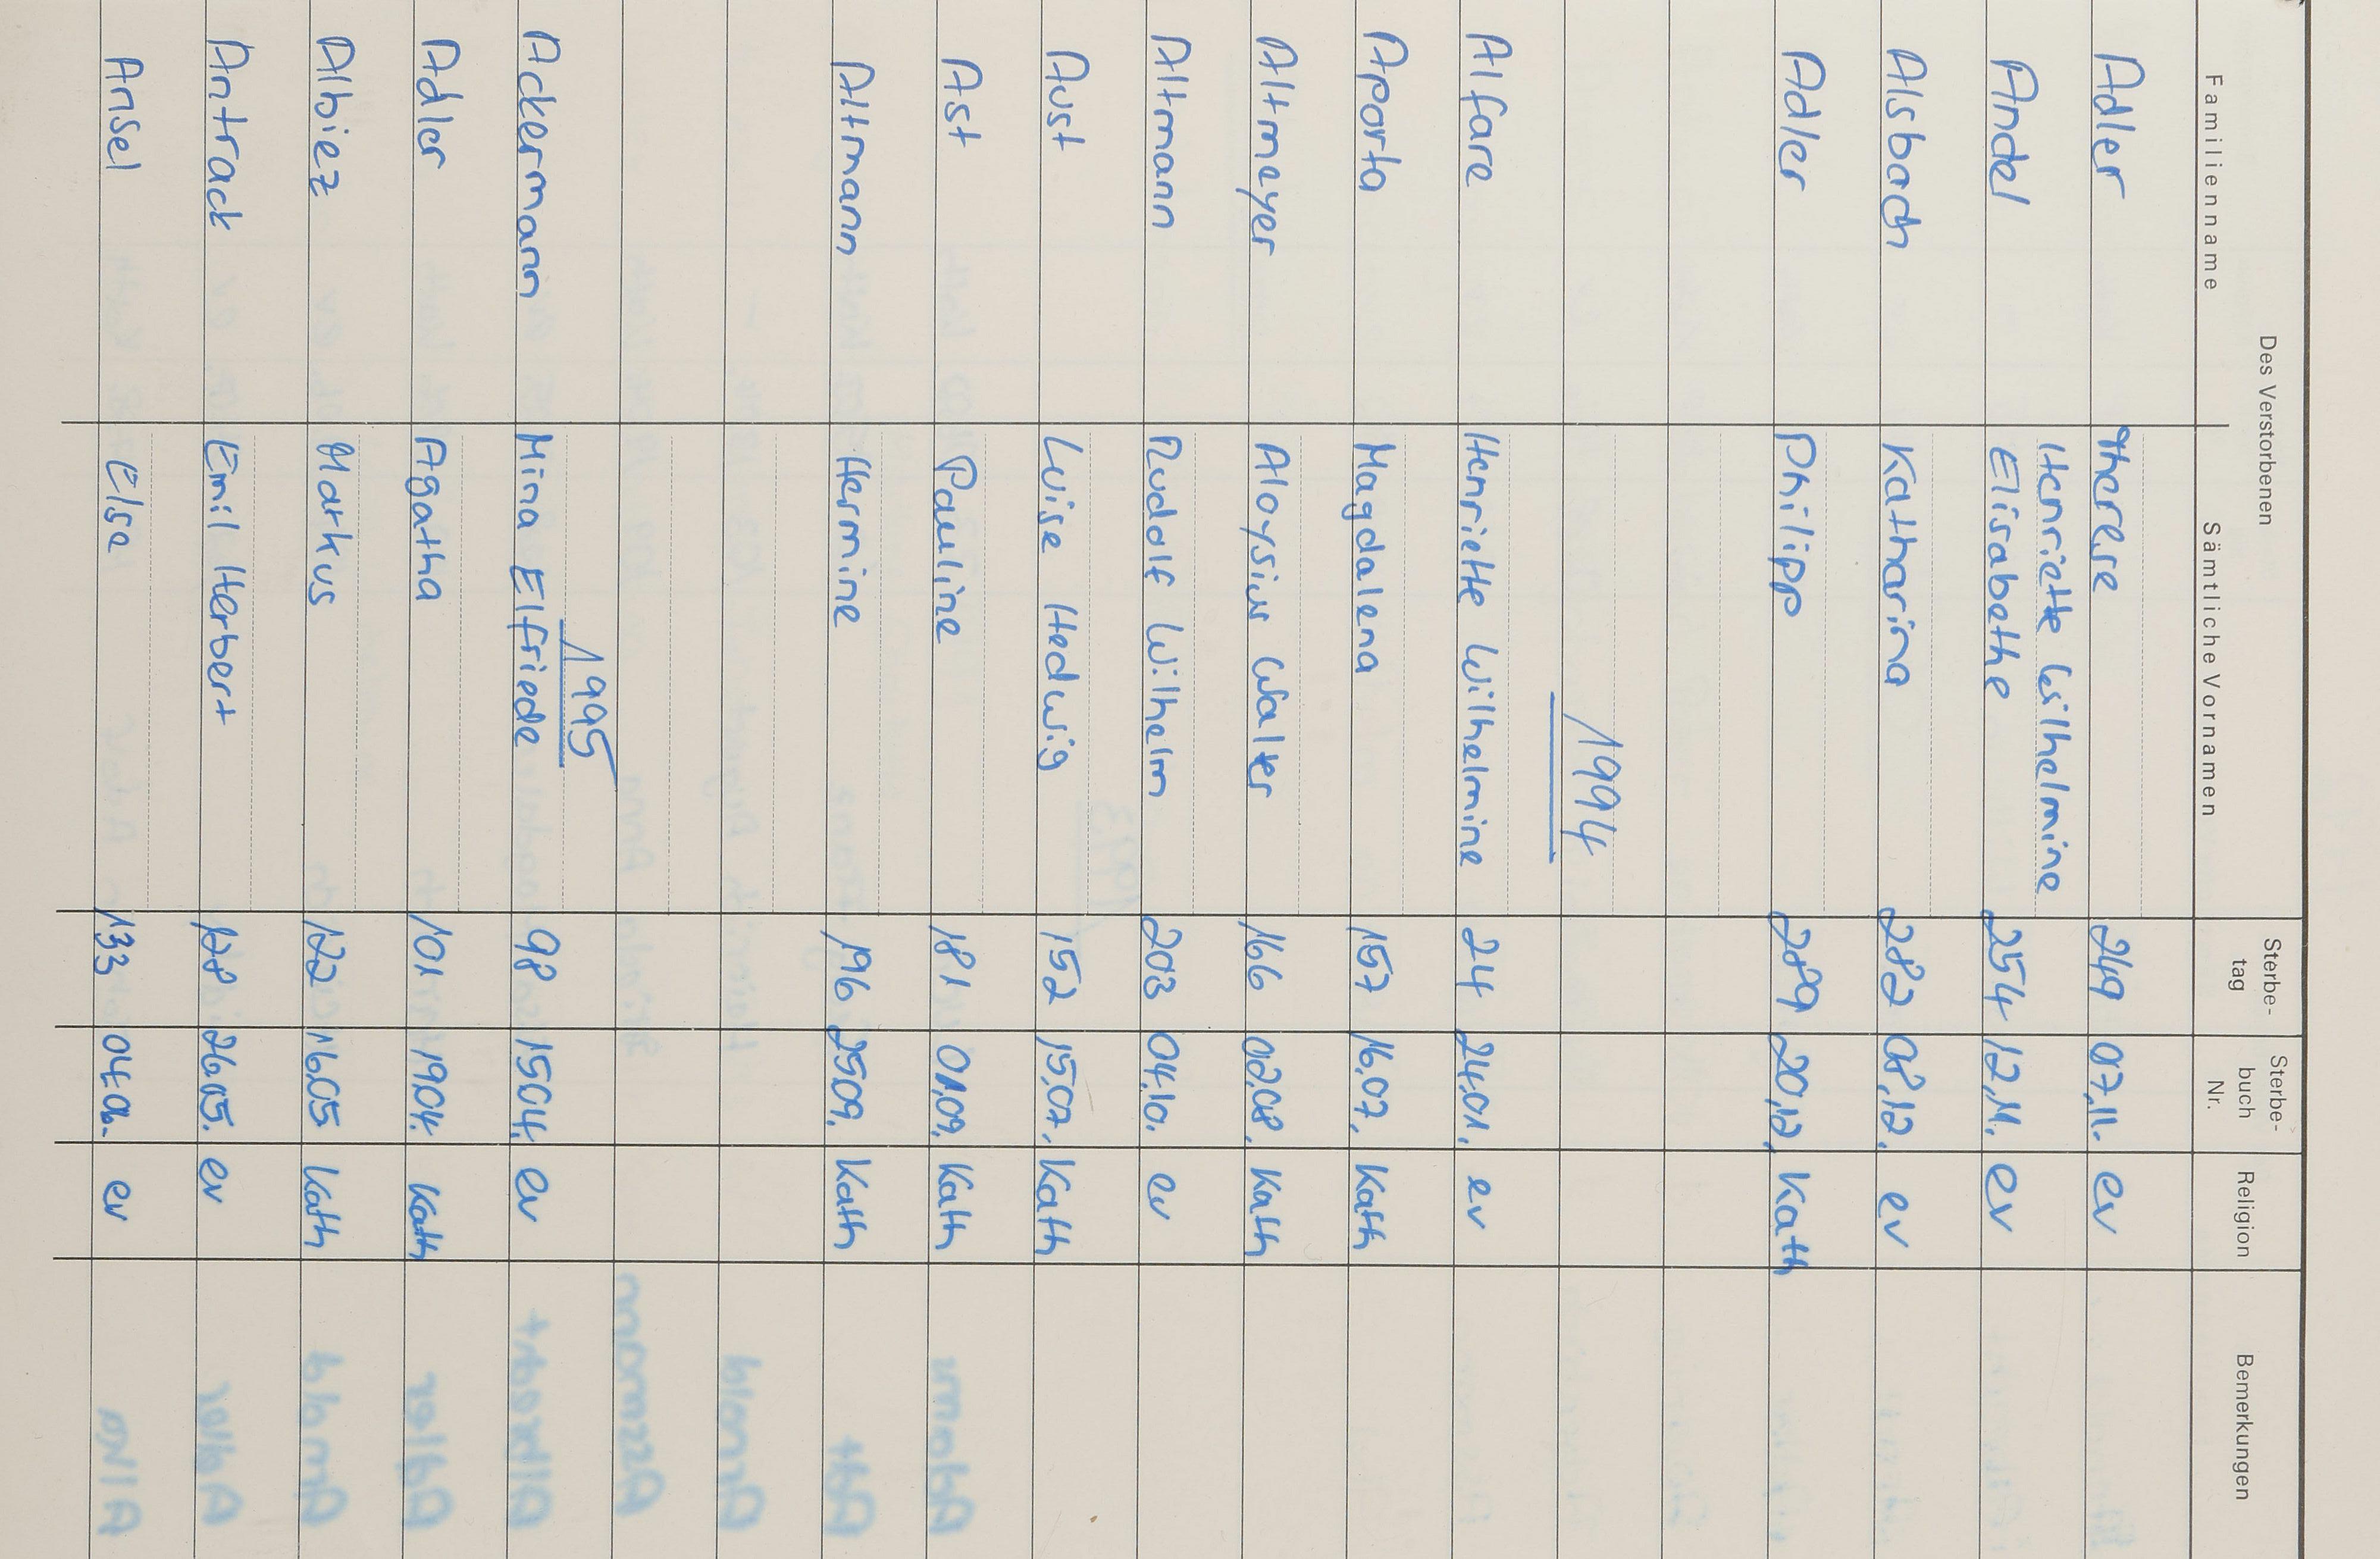 Des Verstorbenen
Familienname Sämtliche Vornamen Sterbe-tag Sterbe-buch Nr. Religion Bemerkungen
Adler Therese 249 07.11. ev
Henriette Wilhelmine
Andel Elisabethe 254 12.11. ev
Alsbach Katharina 282 08.12. ev
Adler Philipp 289 20.12. Kath
1994
Alfare Henriette Wilhelmine 24 24.01. ev
Aporta Magdalena 157 16.07. Kath
Altmeyer Aloysius Walter 166 02.08. Kath
Altmann Rudolf Wilhelm 203 04.10. ev
Aust Luise Hedwig 152 15.07. Kath
Ast Pauline 181 01.09. Kath
Altmann Hermine 196 25.09. Kath
1995
Ackermann Mina Elfriede 98 15.04. ev
Adler Agatha 101 19.04. Kath
Albiez Markus 122 16.05 Kath
Antrack Emil Herbert 128 26.05. ev
Ansel Elsa 133 04.06. ev